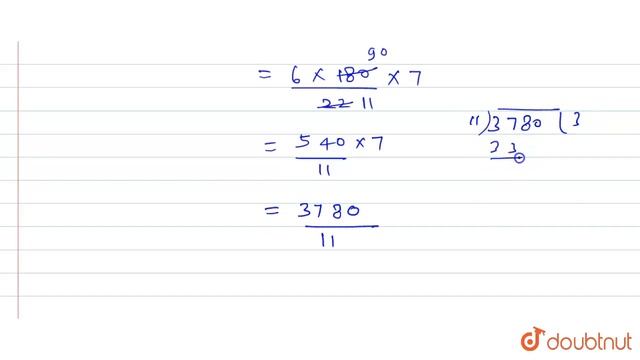 90
= 6 × 180 × 7
22 11
= 540 × 7
11
= 3780
11
11)3780(3
33
doubtnut